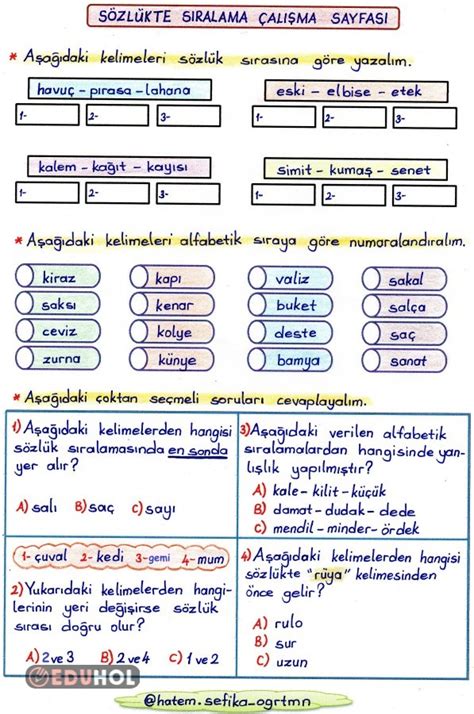 SÖZLÜKTE SIRALAMA ÇALIŞMA SAYFASI
* Aşağıdaki kelimeleri sözlük sırasına göre yazalım.
havuç - pırasa - lahana
1- 2- 3-
eski - elbise - etek
1- 2- 3-
kalem - kağıt - kayısı
1- 2- 3-
simit - kumaş - senet
1- 2- 3-
* Aşağıdaki kelimeleri alfabetik sıraya göre numaralandıralım.
kiraz kapı valiz sakal
saksı kenar buket salça
ceviz kolye deste saç
zurna künye bamya sanat
* Aşağıdaki çoktan seçmeli soruları cevaplayalım.
1) Aşağıdaki kelimelerden hangisi
sözlük sıralamasında en sonda
yer alır?
A) salı B) saç C) sayı
1- çuval 2- kedi 3- gemi 4- mum
2) Yukarıdaki kelimelerden hangi-
lerinin yeri değişirse sözlük
sırası doğru olur?
A) 2 ve 3 B) 2 ve 4 C) 1 ve 2
3) Aşağıda verilen alfabetik
sıralamalardan hangisinde yan-
lışlık yapılmıştır?
A) kale - kilit - küçük
B) damat - dudak - dede
C) mendil - minder - ördek
4) Aşağıdaki kelimelerden hangisi
sözlükte "rüya" kelimesinden
önce gelir?
A) rulo
B) sur
C) uzun
EDUHOL
@hatem.sefika_ogrtmn